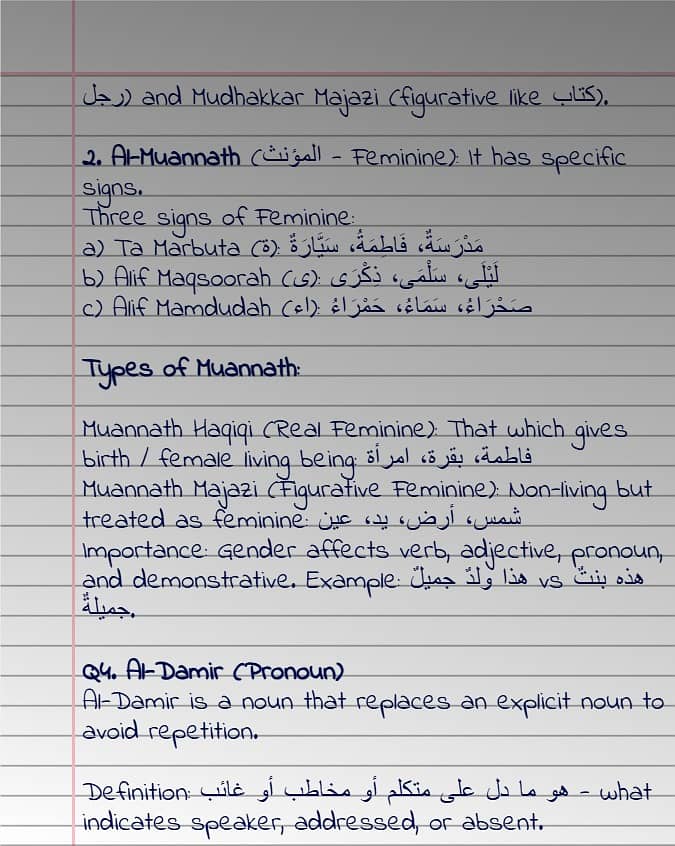 رجل) and Mudhakkar Majazi (figurative like كتاب).
2. Al-Muannath (المؤنث - Feminine): It has specific
signs.
Three signs of Feminine:
a) Ta Marbuta (ة): مَدْرَسَةٌ، فَاطِمَةُ، سَيَّارَةٌ
b) Alif Maqsoorah (ى): لَيْلَى، سَلْمَى، ذِكْرَى
c) Alif Mamdudah (اء): صَحْرَاءُ، سَمَاءُ، حَمْرَاءُ
Types of Muannath:
Muannath Haqiqi (Real Feminine): That which gives
birth / female living being: فاطمة، بقرة، امرأة
Muannath Majazi (Figurative Feminine): Non-living but
treated as feminine: شمس، أرض، يد، عين
Importance: Gender affects verb, adjective, pronoun,
and demonstrative. Example: هذا ولدٌ جميلٌ vs هذه بنتٌ
جميلةٌ.
Q4. Al-Damir (Pronoun)
Al-Damir is a noun that replaces an explicit noun to
avoid repetition.
Definition: هو ما دل على متكلم أو مخاطب أو غائب - what
indicates speaker, addressed, or absent.